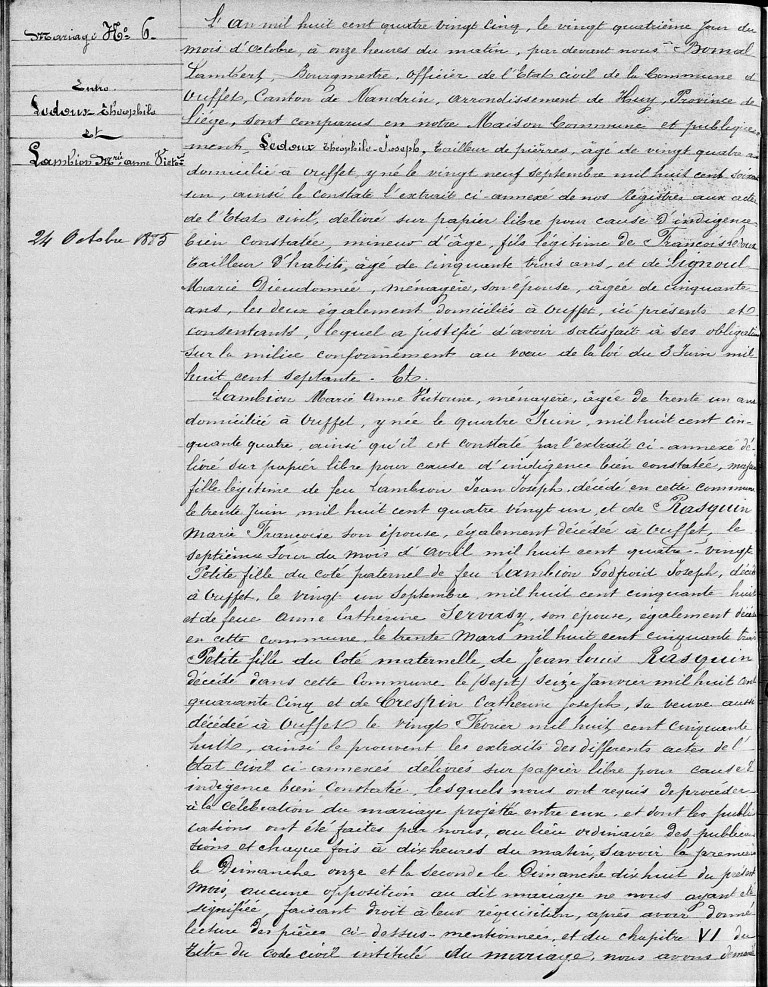 Mariage No 6.
Entre
Ledoux Théophile
Et
Lambion Marie anne Victne
24 Octobre 1885
L'An mil huit cent quatre vingt cinq, le vingt quatrième jour du
mois d'Octobre, à onze heures du matin, par devant nous Bomal
Lambert, Bourgmestre, officier de l'Etat civil de la Commune d
Ouffet, Canton de Nandrin, arrondissement de Huy, Province de
Liège, sont comparus en notre Maison Commune et publique
ment, Ledoux Théophile-Joseph, tailleur de pierres, âgé de vingt quatre a
domicilié à Ouffet, y né le vingt neuf septembre mil huit cent soixa
un, ainsi le constate l'extrait ci-annexé de nos registres aux actes
de l'Etat civil, délivré sur papier libre pour cause d'indigence
bien constatée, mineur d'âge, fils légitime de François Ledoux
tailleur d'habits, âgé de cinquante trois ans, et de Lignoul
Marie Dieudonnée, ménagère, son épouse, âgée de cinquante
ans, les deux également domiciliés à Ouffet, ici présents et
consentants, lequel a justifié d'avoir satisfait à ses obligation
sur la milice conformément au voeu de la loi du 3 Juin mil
huit cent septante. Et.
Lambion Marie Anne Victorine, ménagère, âgée de trente un ans
domiciliée à Ouffet, y née le quatre Juin, mil huit cent cin-
quante quatre, ainsi qu'il est constaté par l'extrait ci-annexé dé-
livré sur papier libre pour cause d'indigence bien constatée, majeure
fille légitime de feu Lambion Jean Joseph, décédé en cette commune
le trente Juin mil huit cent quatre vingt un, et de Rasquin
Marie Françoise son épouse, également décédée à Ouffet, le
septième Jour du mois d'Avril mil huit cent quatre-vingt
Petite fille du coté paternel de feu Lambion Godfroid Joseph, décédé
à Ouffet, le vingt un septembre, mil huit cent cinquante huit
et de feue Anne Catherine Servaty, son épouse, également décédée
en cette commune, le trente Mars mil huit cent cinquante trois
Petite fille du Coté maternelle, de Jean Louis Rasquin
décédé dans cette Commune le (sept) seize Janvier mil huit cent
quarante cinq et de Crespin Catherine Joseph, sa veuve aussi
décédée à Ouffet le vingt Février mil huit cent cinquante
huit, ainsi le prouvent les extraits des differents actes de l'
Etat civil ci-annexés délivrés sur papier libre pour cause d'
indigence bien constatée, lesquels nous ont requis de procéder
à la célébration du mariage projetté entre eux, et dont les publi
cations ont été faites par nous, au lieu ordinaire des publica
tions et chaque fois à dix heures du matin, savoir la premièr
le Dimanche onze et la seconde le Dimanche dix huit du présent
Mois, aucune opposition au dit mariage ne nous ayant été
signifiée faisant droit à leur réquisition, après avoir donné
lecture des pièces ci-dessus-mentionnées, et du chapitre VI du
titre du code civil intitulé du mariage, nous avons demandé